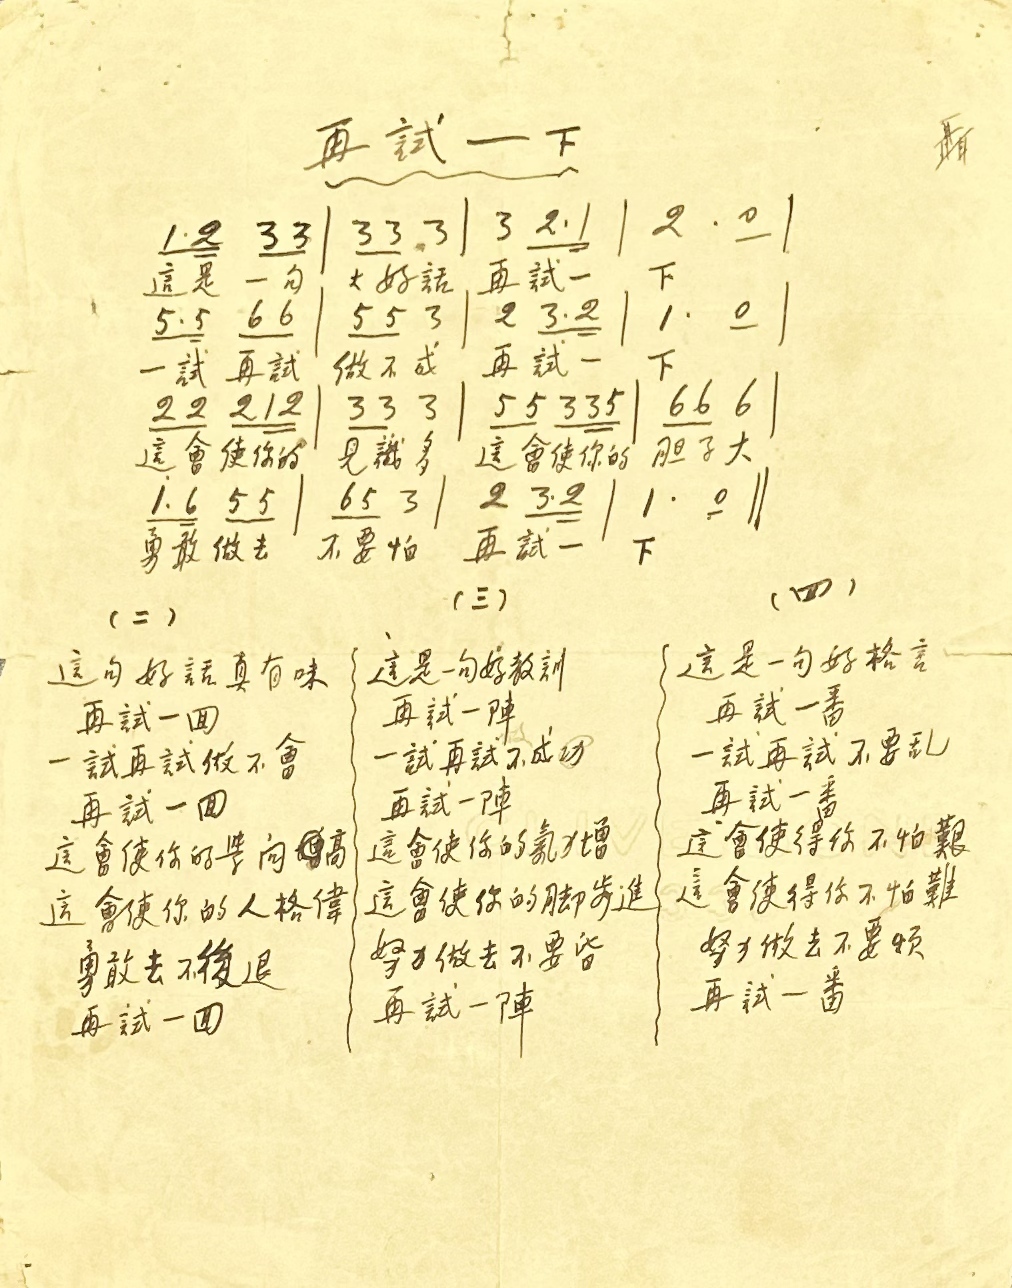 再試一下
1·2 33 | 33 3 | 3 2·1 | 2 · 0 |
這是 一句 大好話 再試一 下
5·5 66 | 55 3 | 2 3·2 | 1 · 0 |
一試 再試 做不成 再試一 下
22 212 | 33 3 | 55 335 | 66 6 |
這會使你的 見識多 這會使你的 胆子大
1·6 55 | 65 3 | 2 3·2 | 1 · 0 ||
勇敢做去 不要怕 再試一 下
(二)
這句好話真有味
再試一回
一試再試做不會
再試一回
這會使你的學問高
這會使你的人格偉
勇敢去不後退
再試一回
(三)
這是一句好教訓
再試一陣
一試再試不成功
再試一陣
這會使你的氣力增
這會使你的脚步進
努力做去不要皆
再試一陣
(四)
這是一句好格言
再試一番
一試再試不要乱
再試一番
這會使得你不怕艱
這會使得你不怕難
努力做去不要煩
再試一番